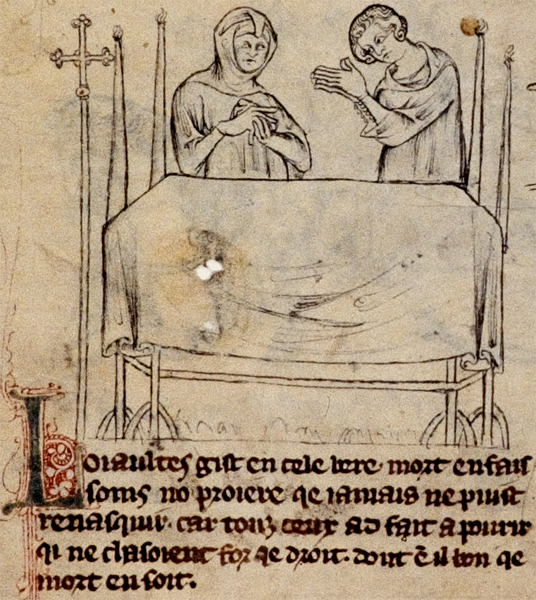 Loiaultes gist en cele bere. mort en fais
soms no proiere qe iamais ne puist
renasquir. car touz ceux ad fait apourir
qi ne chasoient for qe droit. dont ē il bon qe
mort en soit.